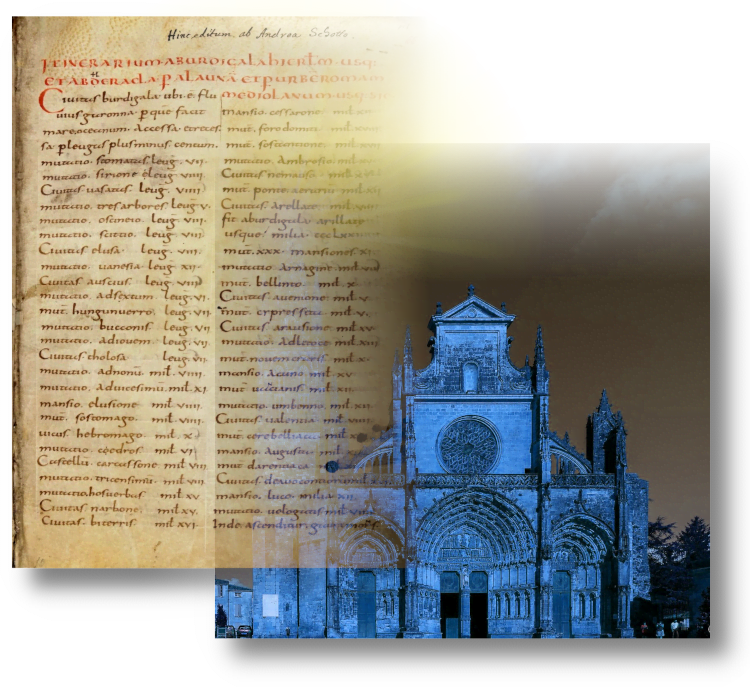 Hinc editum ab Andrea Schotto.
ITINERARIUM A BURDIGALA HIERLM USQ
ET AB
Civitas burdigala ubi e flu
vius garonna p que facit
mare oceanum accessa
sa p leugas plus minus centum.
mutatio stomatas leug. VII.
mutatio sirione leug VIIII
Civitas vasatas leug. VIIII
mutatio tres arbores leug V.
mutatio oscineio leug VIII.
mutatio scitio. leug VIII.
Civitas elusa leug. VIII.
mutatio vanesia leug XII
Civitas auscius leug VIII
mutatio ad sextum leug. VI.
mut. hungunuerro leug. VII
mutatio bucconis leug. VII
mutatio ad iouem leug. VII
Civitas tholosa leug VII
mutatio ad nonum mil. VIIII
mutatio ad vicesimum mil XI
mansio elusione mil VIIII
mut. sostomago mil VIIII.
vicus hebromago mil X
mutatio cedros mil VI
Castellu carcassone mil VIII
mutatio tricensimu mil VIII
mutatio hosuerbas mil XV
Civitas narbone mil XV
Civitas biterris mil XVI.
MEDIOLANUM USQ
mansio cessarone mil
mut. foro domiti mil
mut. sostantione mil
mutatio ambrosio mil
Civitas nemauso mil
mut. ponte aerarium mil
Civitas arellate mil
fit a burdigala arillate
usque milia CCCLXXI
mut. XXX mansiones XI
mutatio arnagine mil VIII
mut. bellinto mil X
Civitas auenione mil V
mut. cypresseta mil V
Civitas arausione mil XV
mutatio ad lectoce mil XIII
mut. nouem craris mil X
mansio acuno mil XV
mut vancianis mil XII
mutatio umbenno mil XII
Civitas valentia mil VIIII
mut cerebelliaca mil XII
mansio augusta mil X
mut darentiaca
Civitas dea vocontiorum mil
mansio luco milia XII
mutatio vologatis mil VIIII
Inde ascenditur gaura mons